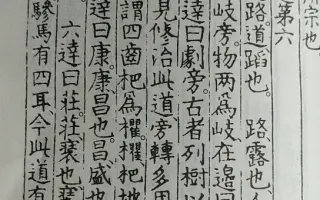 宗也
第六
路。道蹈也。 路露也。人
岐旁。物两爲岐在邊曰
達曰劇旁。古者列樹以
見修治此道。旁轉多用
謂四齒杷爲欋。欋杷地
達曰康。康昌也。昌盛也
六達曰莊。莊裝也。裝
驂馬有四耳。今此道有